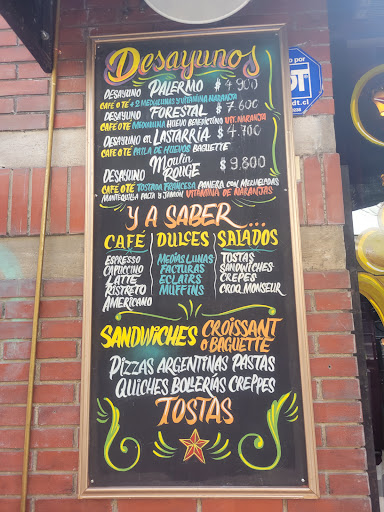 Desayunos
DESAYUNO PALERMO $4.900
CAFE O TÉ + 2 MEDIALUNAS Y VITAMINA NARANJA
DESAYUNO FORESTAL $7.600
CAFE O TÉ MEDIALUNA HUEVO BENEDICTINO VIT. NARANJA
DESAYUNO en LASTARRIA $4.700
CAFE O TÉ PAILA DE HUEVOS BAGUETTE
DESAYUNO Moulin ROUGE $9.800
CAFE O TÉ TOSTADA FRANCESA PANERA CON MERMELADAS
MANTEQUILLA PALTA Y JAMÓN VITAMINA DE NARANJAS
Y A SABER...
CAFÉ DULCES SALADOS
ESPRESSO MEDIASLUNAS TOSTAS
CAPUCCINO FACTURAS SANDWICHES
LATTE ECLAIRS CREPES
RISTRETO MUFFINS CROQ MONSEUR
AMERICANO
SANDWICHES CROISSANT
O BAGUETTE
PIZZAS ARGENTINAS PASTAS
QUICHES BOLLERÍAS CREPPES
TOSTAS